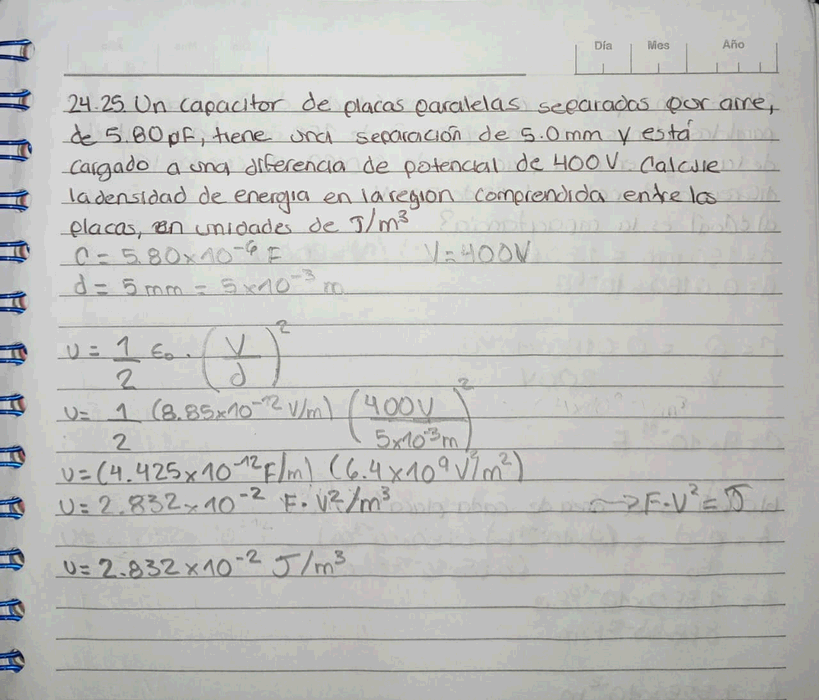 Día Mes Año
24.25 Un capacitor de placas paralelas separadas por aire,
de 5.80 pF, tiene una separación de 5.0 mm y está
cargado a una diferencia de potencial de 400 V. Calcule
la densidad de energia en la region comprendida entre las
placas, en unidades de J/m³
C = 5.80 x 10⁻⁶ F V = 400V
d = 5 mm = 5 x 10⁻³ m
U = 1/2 ε₀ · (V/d)²
U = 1/2 (8.85 x 10⁻¹² V/m) (400V / 5x10⁻³m)²
U = (4.425 x 10⁻¹² F/m) (6.4 x 10⁹ V²/m²)
U = 2.832 x 10⁻² F · V²/m³ → F · V² = J
U = 2.832 x 10⁻² J/m³